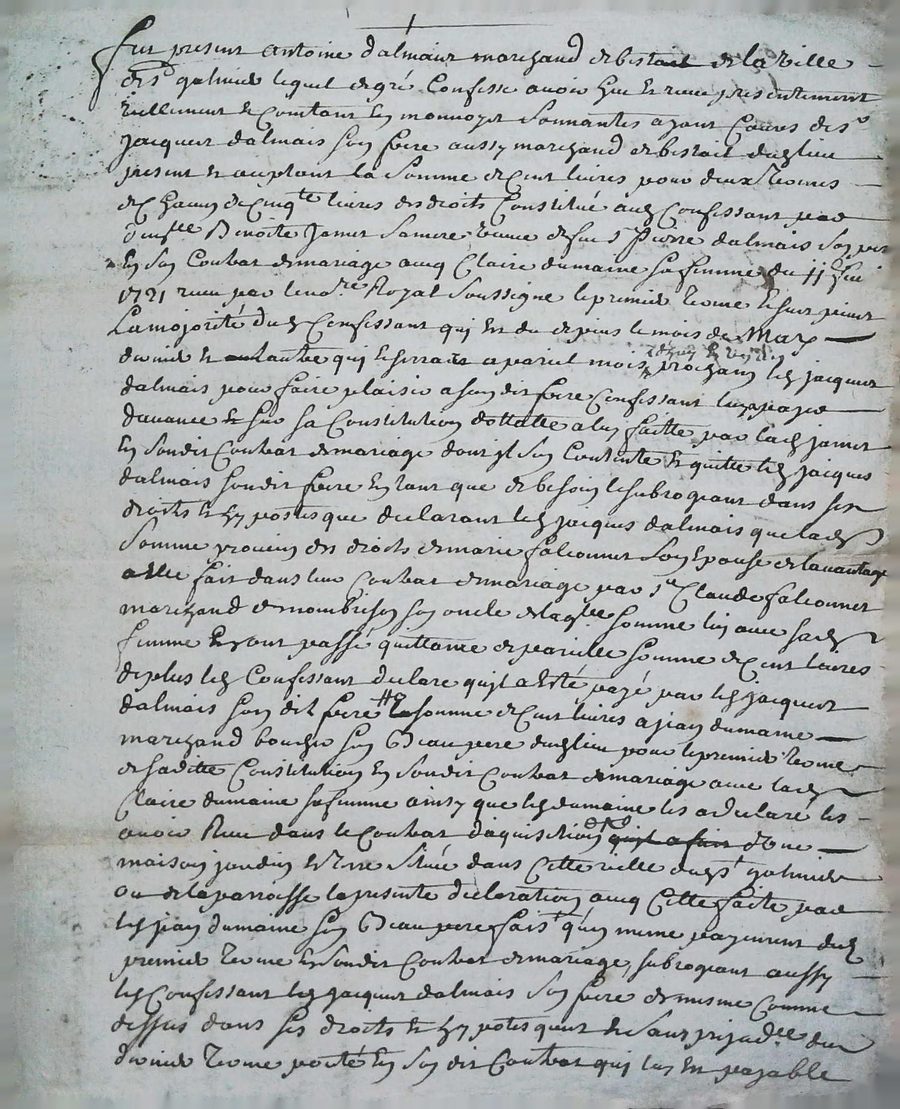 fut present antoine dalmais marchand de bestail de la ville
de st galmier lequel de gré confesse avoir heu et receu presentement
reellement et contant en monnoyes sonnantes ayant cours de sr
jacques dalmais son frere aussy marchand de bestail dud lieu
present et acceptant la somme de cent livres pour deux termes
de chacun de cinqte livres des droits constitué aud confessant par
Benoite Jamet sa mere veuve de feu sr pierre dalmais son pere
en son contrat de mariage avec Claire dumaine sa femme du 11e
1721 receu par le nore Royal soussigne le premier terme
la majorité dud confessant qui est du depuis le mois de Mars
dernier et lautre qui a pareil mois prochain led jacques
dalmais pour faire plaisir a son dit frere confessant
davance et sur sa constitution dottalle a luy faitte par lad jamet
en sondit contrat de mariage dont il son contente et quitte led jacques
dalmais sondit frere en tant que de besoin le subrogeant dans ses
droits et hypoteques declarant led jacques dalmais que lad
somme provien des droits de marie falconnet son epouse de lavantage
a elle fait dans leur contrat de mariage par sr Claude falconnet
marchand de monbrison son oncle de laqlle somme luy avec sad
femme en ont passé quittance de pareille somme de cent livres
de plus led confessant declare quil a esté payé par led jacques
dalmais son dit frere la somme de cent livres a jean dumaine
marchand boucher son beau pere dud lieu pour le premier terme
de sa ditte constitution en sondit contrat de mariage avec lad
Claire dumaine sa femme ainsy que led dumaine les a declaré les
avoir Receu dans le contrat daquisition dune
maison jardin et terre située dans cette ville dud st galmier
ou de la parroisse la presente declaration avec cette faite par
led jean dumaine son beau pere faist quen meme payement dud
premier terme en sondit contrat de mariage, subrogeant aussy
led confessant led jacques dalmais son frere de mesme comme
dessus dans ses droits et hypoteques et sans prejudce du
dernier terme porté en son dit contrat qui payable